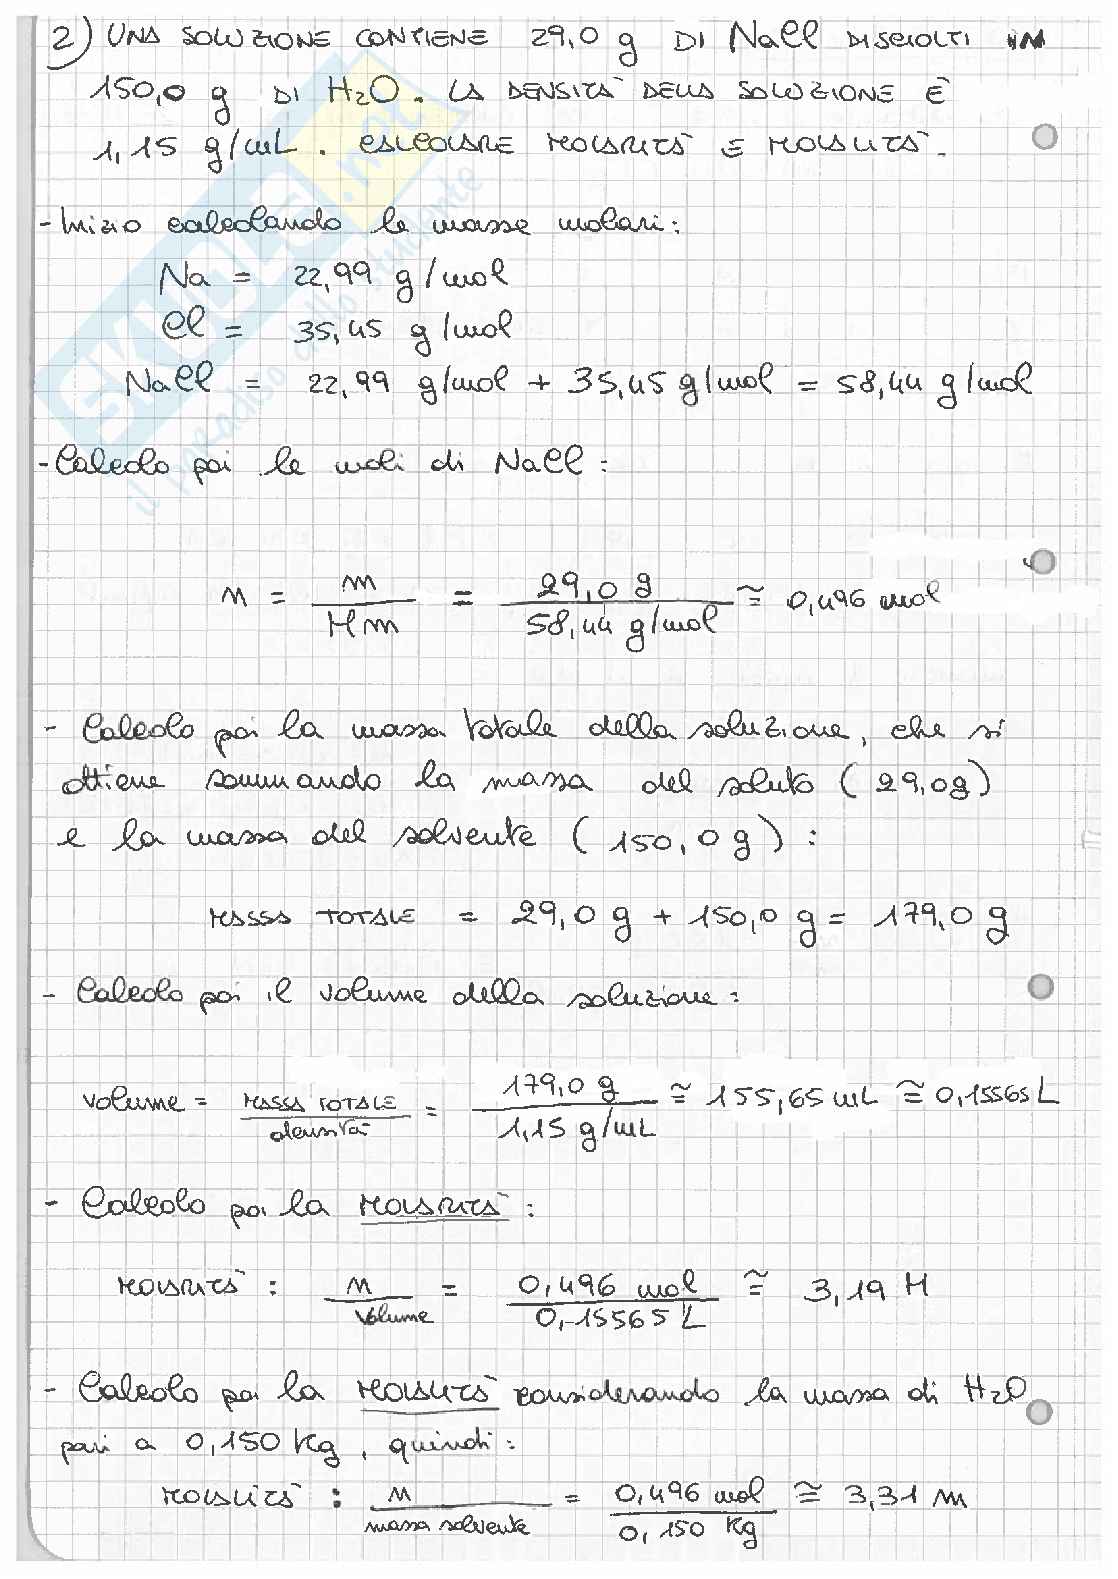 2) UNA SOLUZIONE CONTIENE 29,0 g DI NaCl DISCIOLTI IN
150,0 g DI H₂O. LA DENSITÀ DELLA SOLUZIONE È
1,15 g/mL. CALCOLARE MOLARITÀ E MOLALITÀ.
- Inizio calcolando le masse molari:
Na = 22,99 g/mol
Cl = 35,45 g/mol
NaCl = 22,99 g/mol + 35,45 g/mol = 58,44 g/mol
- Calcolo poi le moli di NaCl:
n = m / Mm = 29,0 g / 58,44 g/mol ≅ 0,496 mol
- Calcolo poi la massa totale della soluzione, che si
ottiene sommando la massa del soluto (29,0g)
e la massa del solvente (150,0 g):
MASSA TOTALE = 29,0 g + 150,0 g = 179,0 g
- Calcolo poi il volume della soluzione:
Volume = MASSA TOTALE / densità = 179,0 g / 1,15 g/mL ≅ 155,65 mL ≅ 0,15565 L
- Calcolo poi la MOLARITÀ:
MOLARITÀ: n / Volume = 0,496 mol / 0,15565 L ≅ 3,19 M
- Calcolo poi la MOLALITÀ considerando la massa di H₂O
pari a 0,150 Kg, quindi:
MOLALITÀ: n / massa solvente = 0,496 mol / 0,150 Kg ≅ 3,31 m
SKUOLA.net
il paradiso dello studente